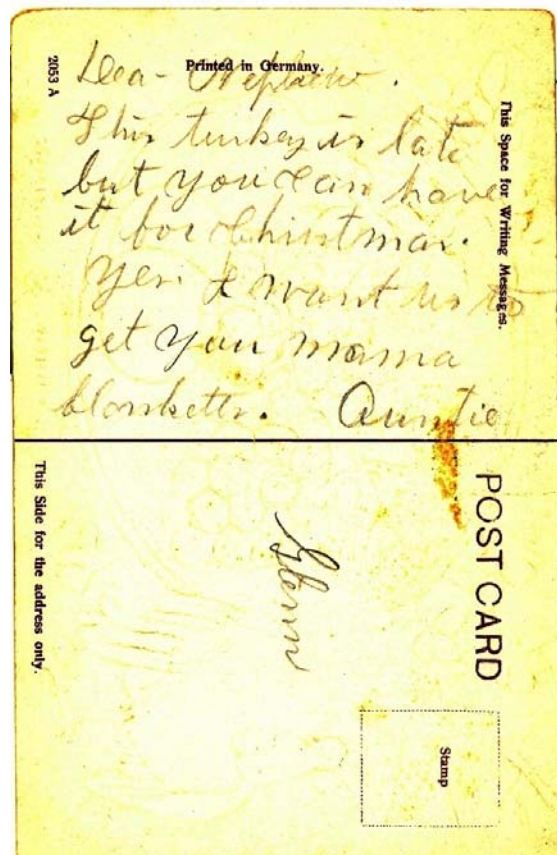 Printed in Germany.
2053 A
This Space for Writing Messages.
Dea- Nephew.
This turkey is late
but you can have
it for Christmas.
Yes I want us to
get you mama
blanketts. Auntie
POST CARD
This Side for the address only.
Glenn
Stamp